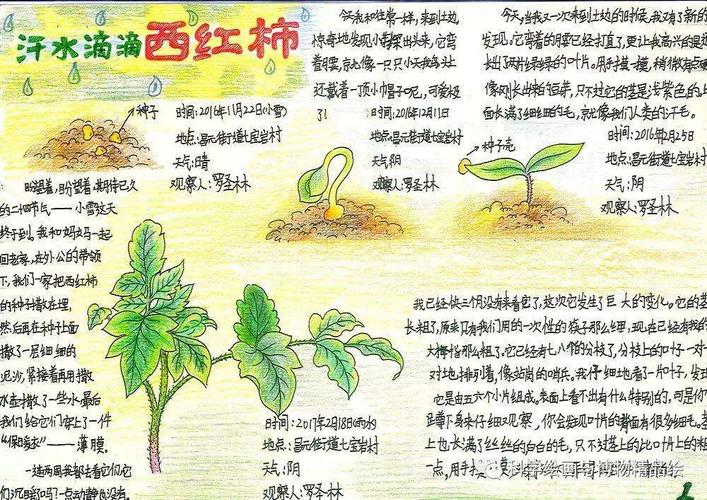 汗水滴滴西红柿
种子
时间:2016年11月22日(小雪)
地点:昌元街道七宝岩村
天气:晴
观察人:罗圣林
盼望着,盼望着,期待已久
的二十四节气——小雪这天
终于到。我和妈妈一起
回老家,在外公的带领
下,我们一家把西红柿
的种子散在埋,
然后再在种子上面
撒了一层细细的
泥沙,紧接着再用撒
水壶撒了一些水,最后
我们给它们穿上了一件
“保暖衣”——薄膜。
一连两周我都去看它们,它
们沉睡的一点动静也没有。
今天我和往常一样,来到土边
惊奇地发现小
出头来,它弯
着腰,就像一只只小天鹅头上
还戴着一顶小帽子呢,可爱极
了!
时间:2016年12月11日
地点:昌元街道七宝岩村
天气:阴
观察人:罗圣林
今天,当我又一次来到土边的时候,我又有了新的
发现。它弯着的腰已经打直了,更让我高兴的是还
长出了两片绿绿的叶片。用手摸一摸,稍微有点
像刚长出来的豆芽,只不过它的茎是浅紫色的,上
面长满了细细的毛,就像我们人类的汗毛。
种子壳
时间:2016年2月25日
地点:昌元街道七宝岩村
天气:阴
观察人:罗圣林
时间:2017年2月18日
地点:昌元街道七宝岩村
天气:阴
观察人:罗圣林
我已经快三个月没有来看它了,这次它发生了巨大的变化。它的茎
长粗了,原来只有我们用的一次性的筷子那么细,现在已经有我的
大拇指那么粗了。它已经有七八个的分枝了,分枝上的叶子一对
对地排列着,像站岗的哨兵。我仔细地看了一片叶子,发现
它是由五六个小片组成。表面上看不出有什么特别的,可是你
蹲下身来仔细观察,你会发现叶片的背面有很多细毛。茎
上也长满了丝丝的白白的毛,只不过茎上的比叶片上的粗
一点,用手摸
科学绘画与博物精品绘